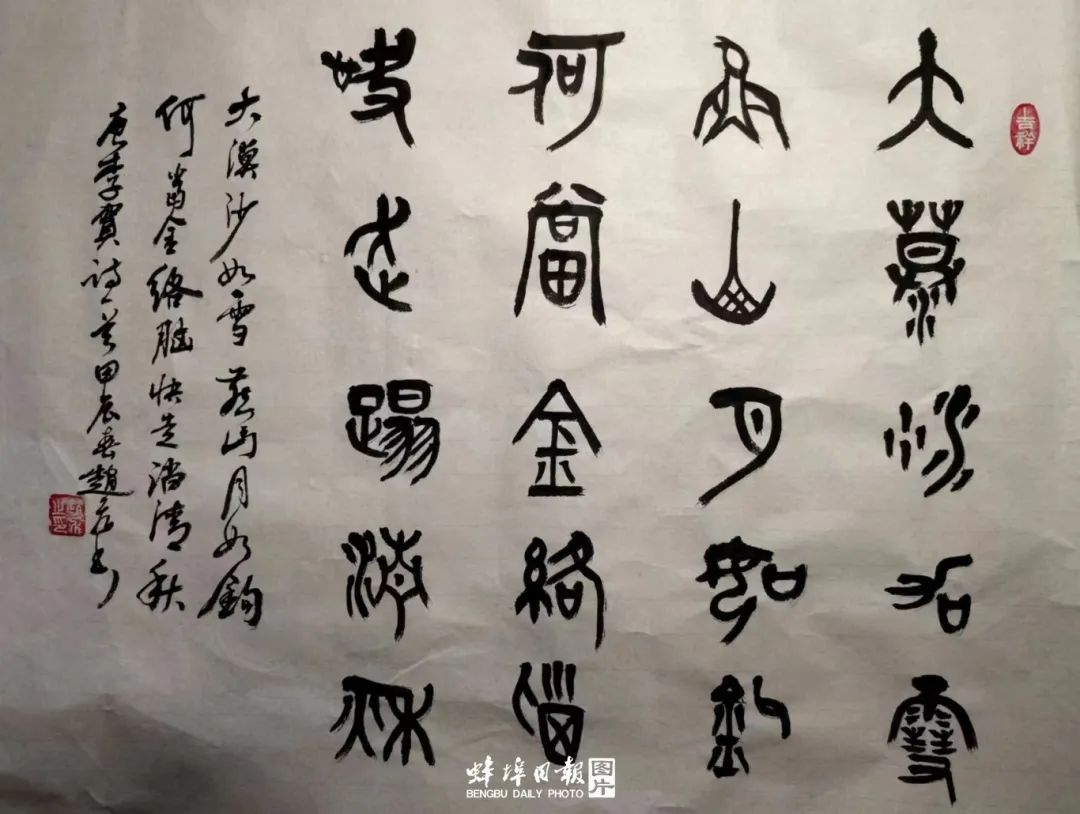 吉祥
大漠沙如雪
燕山月如鈎
何當金絡腦
快走踏清秋
大漠沙如雪燕山月如鈎
何當金絡腦快走踏清秋
唐李賀诗一首甲辰春趙书
蚌埠日報 图片
BENGBU DAILY PHOTO